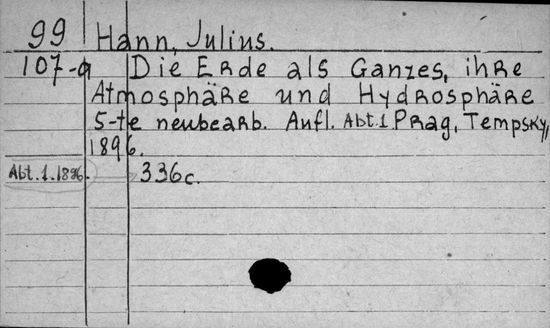 99 Hann, Julius.
107-a Die Erde als Ganzes, ihre
Atmosphäre und Hydrosphäre
5-te neubearb. Aufl. Abt.1 Prag, Tempsky,
1896.
Abt.1.1896. 336c.